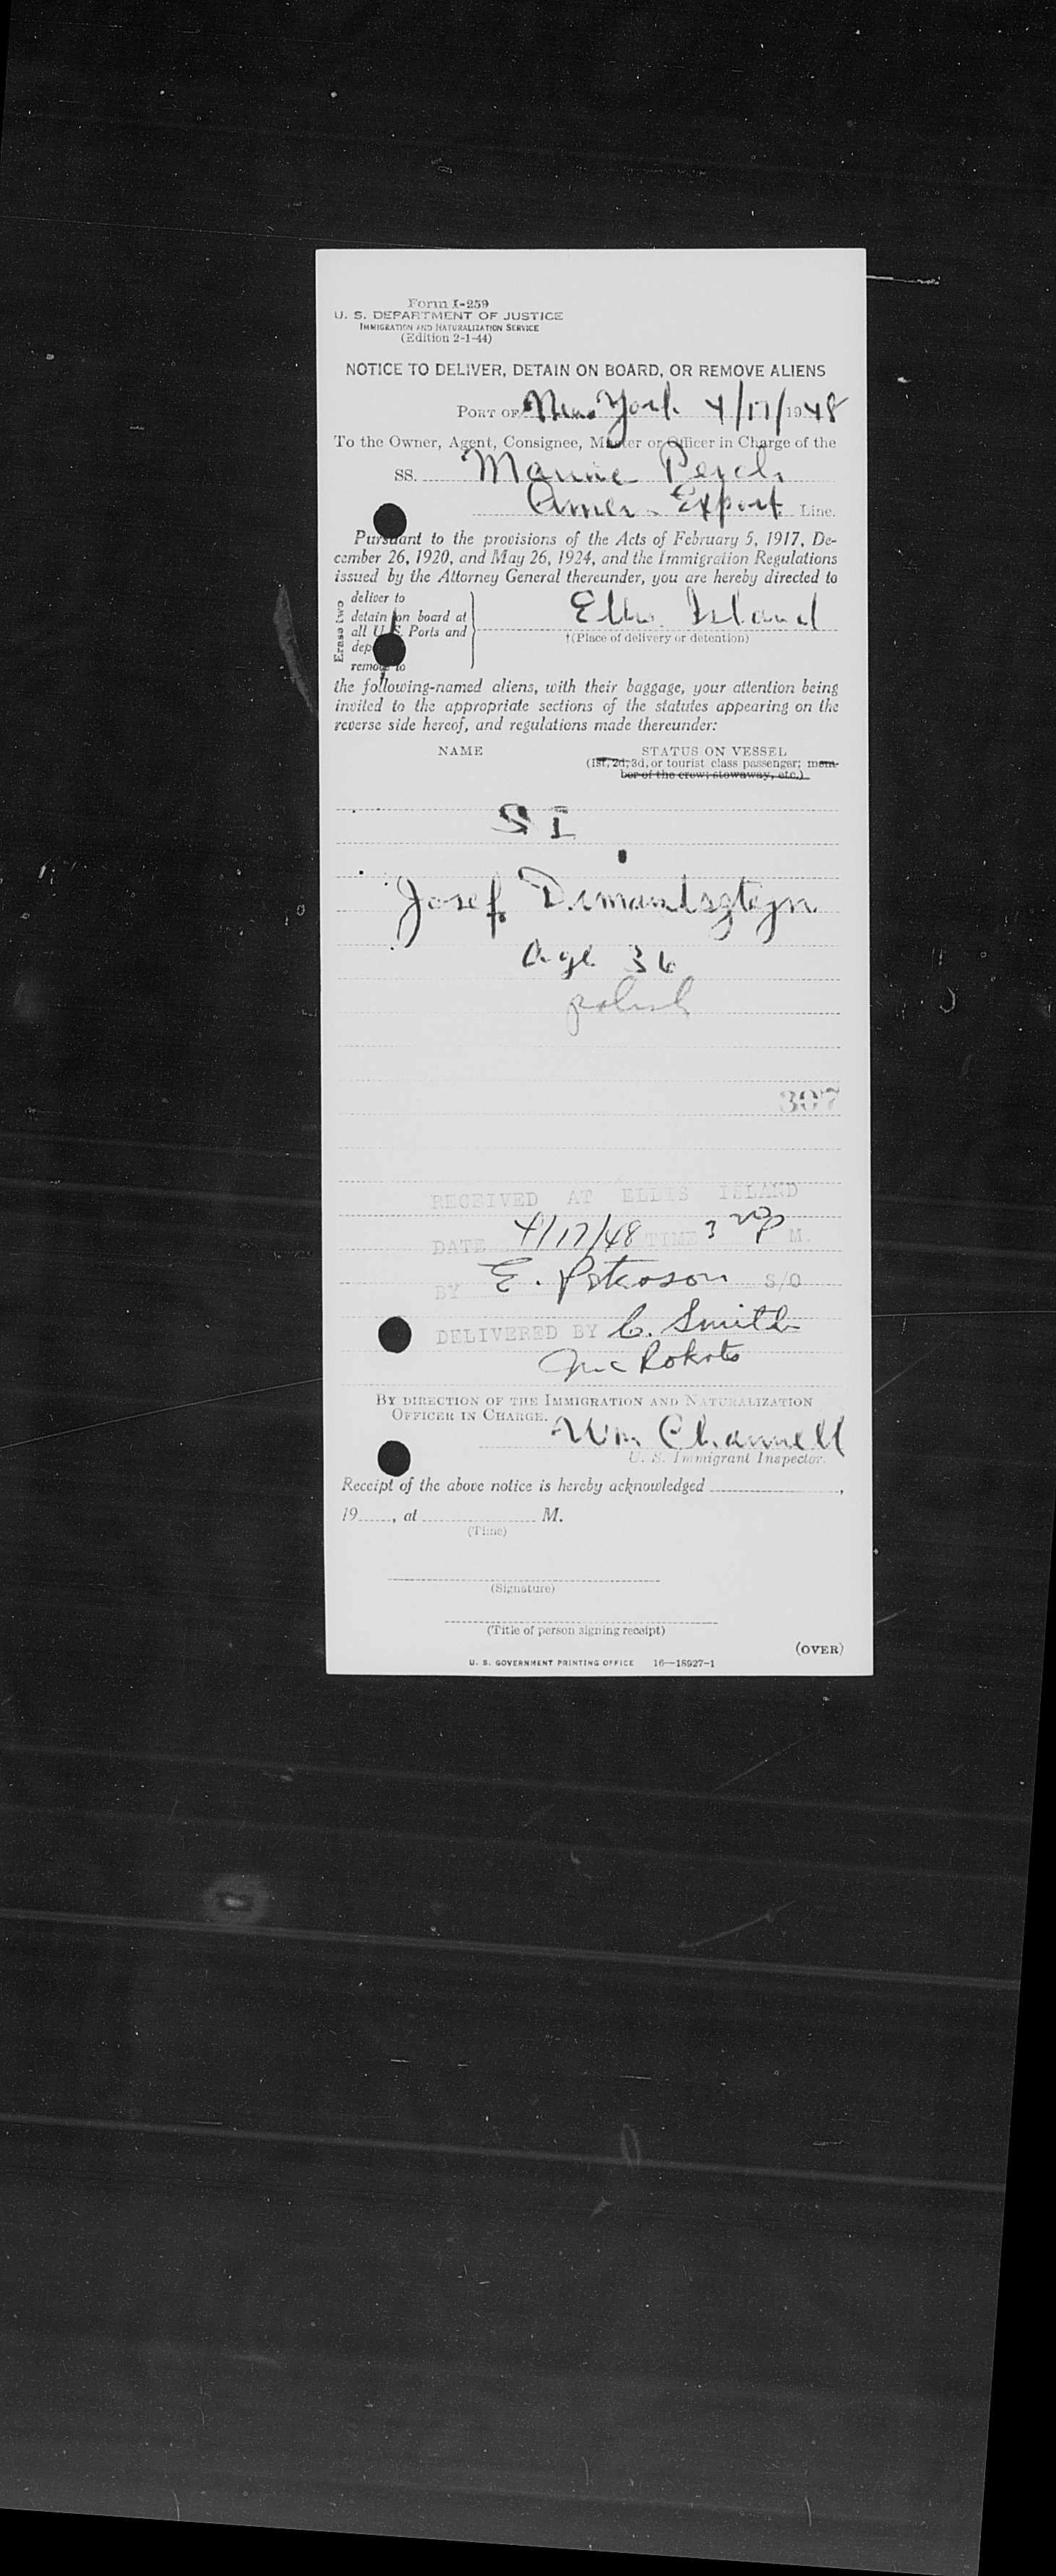 Form I-259
U. S. DEPARTMENT OF JUSTICE
IMMIGRATION AND NATURALIZATION SERVICE
(Edition 2-1-44)
NOTICE TO DELIVER, DETAIN ON BOARD, OR REMOVE ALIENS
PORT OF New York 4/17/1948
To the Owner, Agent, Consignee, Master or Officer in Charge of the
SS. Marine Perch
Amer. Export Line.
Pursuant to the provisions of the Acts of February 5, 1917, De-
cember 26, 1920, and May 26, 1924, and the Immigration Regulations
issued by the Attorney General thereunder, you are hereby directed to
Erase two
deliver to
detain on board at
all U. S. Ports and
dep
remove to
Ellis Island
†(Place of delivery or detention)
the following-named aliens, with their baggage, your attention being
invited to the appropriate sections of the statutes appearing on the
reverse side hereof, and regulations made thereunder:
NAME STATUS ON VESSEL
(1st, 2d, 3d, or tourist class passenger; mem-
ber of the crew; stowaway, etc.)
SI
Josef Dimantsztejn
Age 36
polish
307
RECEIVED AT ELLIS ISLAND
DATE 4/17/48 TIME 3 P M.
BY E. Peterson S/O
DELIVERED BY C. Smith
BY DIRECTION OF THE IMMIGRATION AND NATURALIZATION
OFFICER IN CHARGE.
Wm Channell
U. S. Immigrant Inspector.
Receipt of the above notice is hereby acknowledged ,
19 , at M.
(Time)
(Signature)
(Title of person signing receipt)
(OVER)
U. S. GOVERNMENT PRINTING OFFICE 16—18927-1